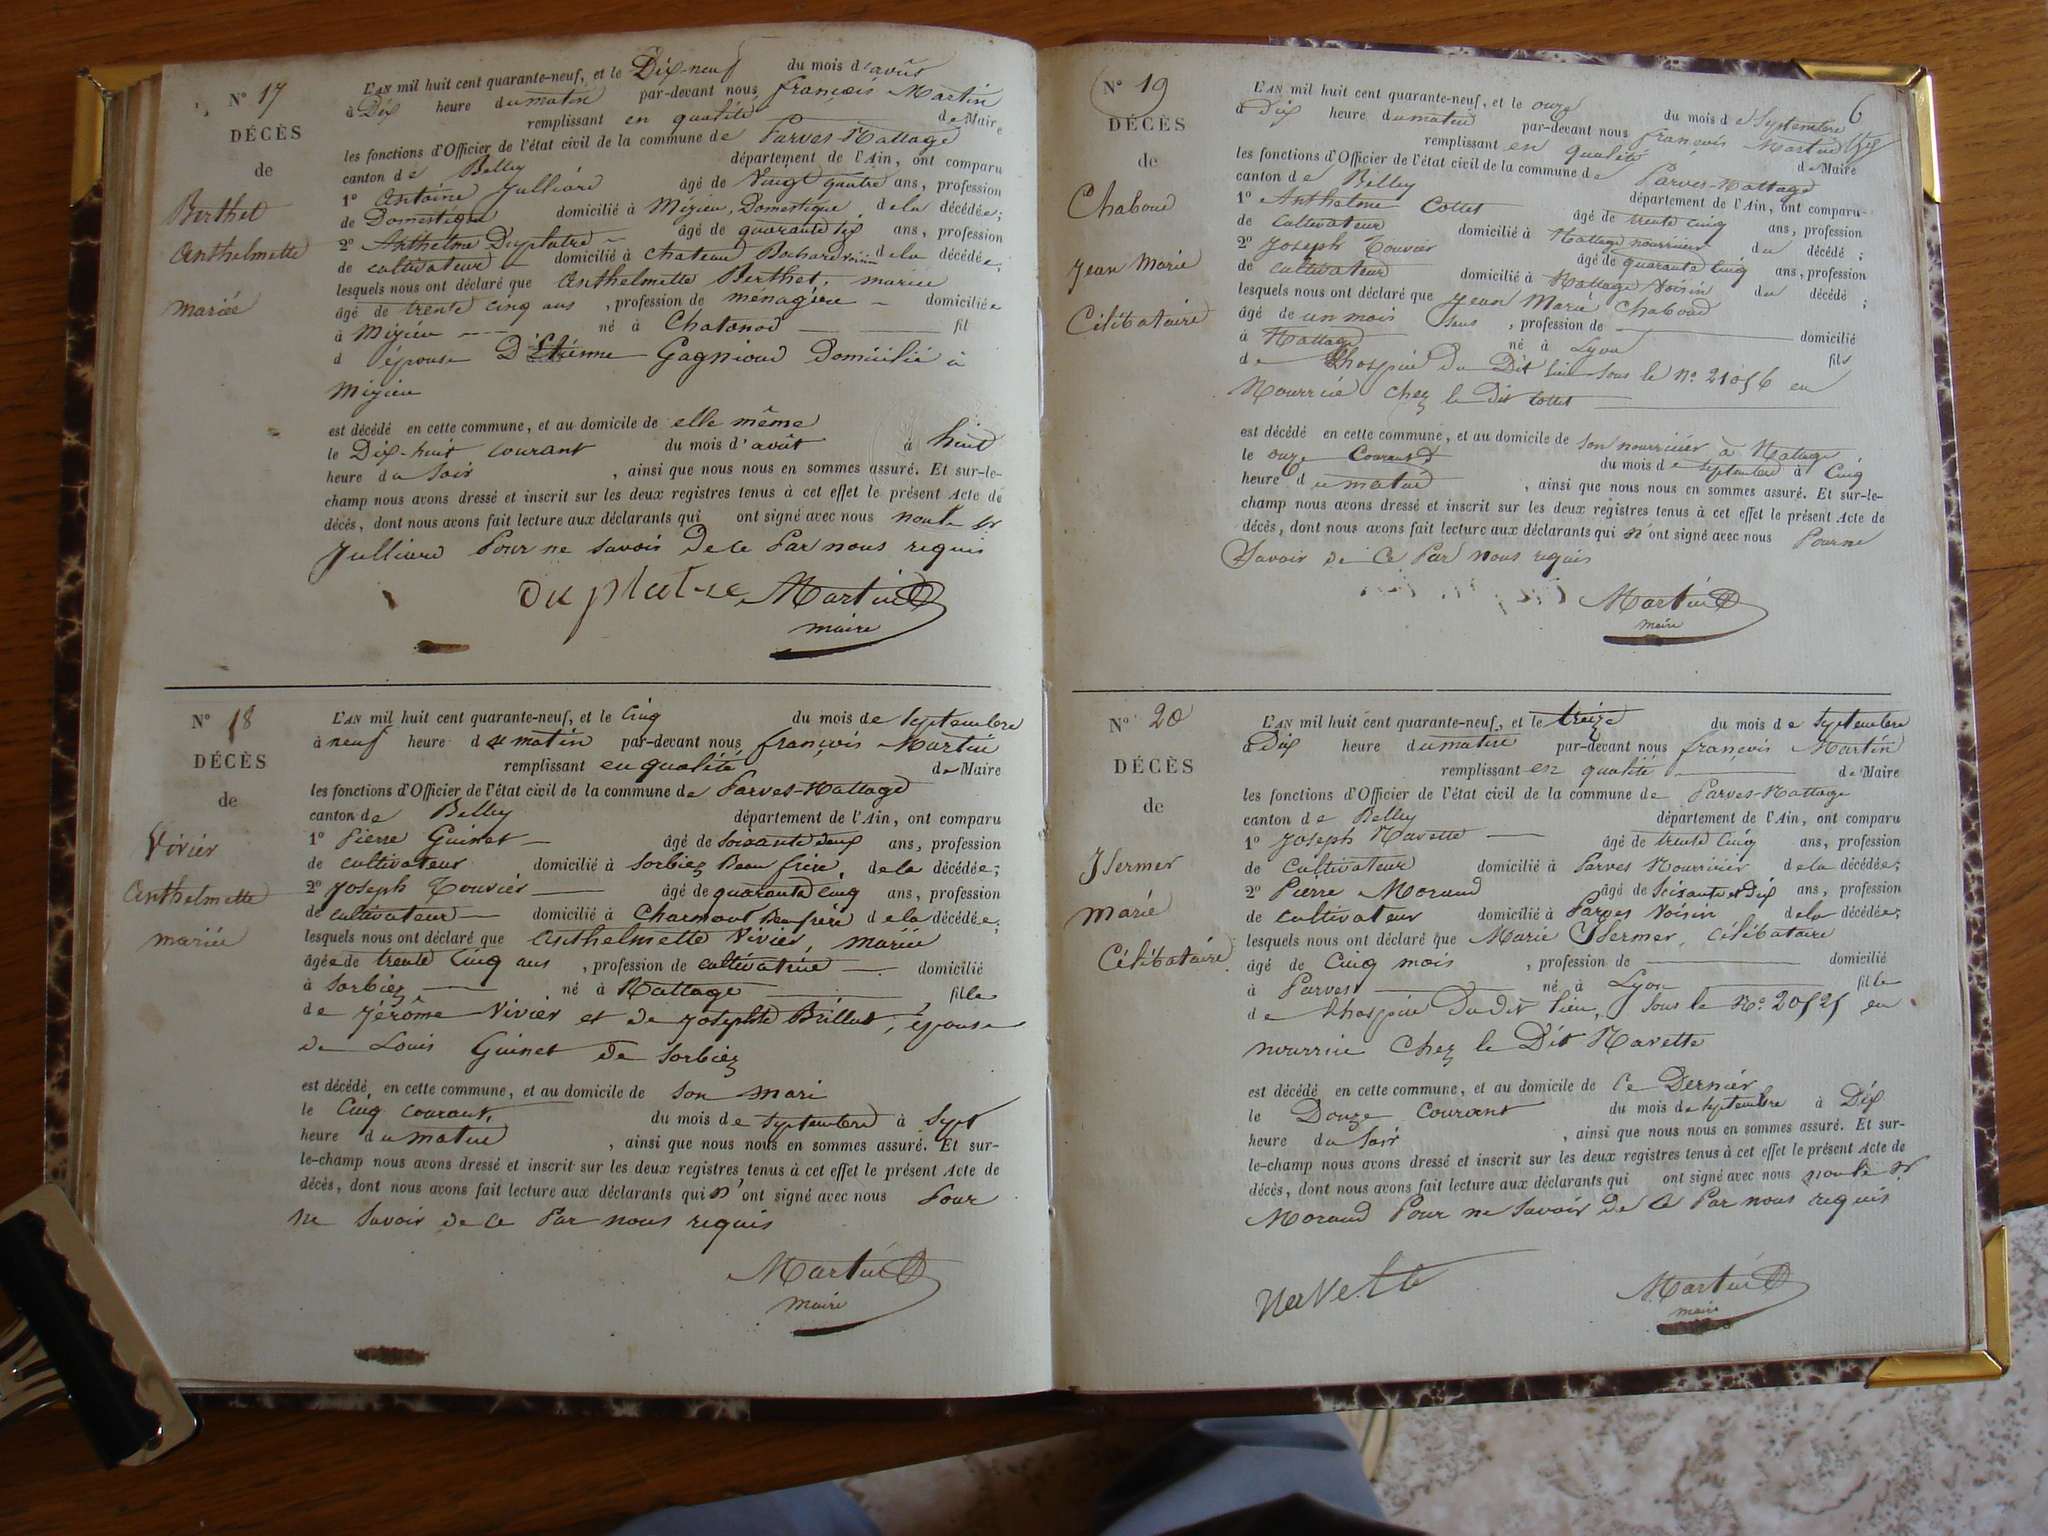 N° 17
DÉCÈS
de
Berthet
Anthelmette
mariée
L'AN mil huit cent quarante-neuf, et le Dix-neuf du mois d'août
à Dix heure du matin par-devant nous françois Martin
remplissant en qualité de Maire
les fonctions d'Officier de l'état civil de la commune de Parves-Nattage
canton de Belley département de l'Ain, ont comparu
1° Antoine Julliard âgé de Vingt quatre ans, profession
de Domestique domicilié à Mizieu, Domestique de la décédée;
2° Anthelme Duplatre âgé de quarante six ans, profession
de cultivateur domicilié à chateau Bochard voisin de la décédée;
lesquels nous ont déclaré que Anthelmette Berthet, mariée
âgé de trente cinq ans, profession de menagère domiciliée
à Mizieu né à Chatonod fil
d épouse D'Etienne Gagnioud Domicilié à
Mizieu
est décédé en cette commune, et au domicile de elle même
le Dix-huit courant du mois d'août à huit
heure du soir, ainsi que nous nous en sommes assuré. Et sur-le-
champ nous avons dressé et inscrit sur les deux registres tenus à cet effet le présent Acte de
décès, dont nous avons fait lecture aux déclarants qui ont signé avec nous non le Sr
Julliard Pour ne savoir De ce Par nous requis
duplatre Martin
maire
N° 18
DÉCÈS
de
Vivier
Anthelmette
mariée
L'AN mil huit cent quarante-neuf, et le Cinq du mois de septembre
à neuf heure du matin par-devant nous françois Martin
remplissant en qualité de Maire
les fonctions d'Officier de l'état civil de la commune de Parves-Nattage
canton de Belley département de l'Ain, ont comparu
1° Pierre Guinet âgé de soixante deux ans, profession
de cultivateur domicilié à Sorbiez Beau frère de la décédée;
2° Joseph Touvier âgé de quarante cinq ans, profession
de cultivateur domicilié à Charmont Beau frère de la décédée;
lesquels nous ont déclaré que Anthelmette Vivier, mariée
âgée de trente Cinq ans, profession de cultivatrice domicilié
à Sorbiez né à Nattage fille
de Jérôme Vivier et de Josephte Brillat, épouse
de Louis Guinet de Sorbiez
est décédé en cette commune, et au domicile de son mari
le Cinq courant du mois de septembre à Sept
heure du matin, ainsi que nous nous en sommes assuré. Et sur-
le-champ nous avons dressé et inscrit sur les deux registres tenus à cet effet le présent Acte de
décès, dont nous avons fait lecture aux déclarants qui n'ont signé avec nous Pour
ne savoir de ce Par nous requis
Martin
maire
N° 19
6
DÉCÈS
de
Chaboud
Jean Marie
Célibataire
L'AN mil huit cent quarante-neuf, et le onze du mois de Septembre
à Dix heure du matin par-devant nous françois Martin
remplissant en qualité de Maire
les fonctions d'Officier de l'état civil de la commune de Parves-Nattage
canton de Belley département de l'Ain, ont comparu
1° Anthelme Cottet âgé de trente cinq ans, profession
de cultivateur domicilié à Nattage nourricier du décédé;
2° Joseph Touvier âgé de quarante Cinq ans, profession
de cultivateur domicilié à Nattage Voisin du décédé;
lesquels nous ont déclaré que Jean Marie Chaboud
âgé de un mois, profession de domicilié
à Nattage né à Lyon fils
de Lhospice Du Dit lieu sous le N° 21056 en
Nourrice chez le Dit Cottet
est décédé en cette commune, et au domicile de son nourricier à Nattage
le onze Courant du mois de septembre à Cinq
heure du matin, ainsi que nous nous en sommes assuré. Et sur-le-
champ nous avons dressé et inscrit sur les deux registres tenus à cet effet le présent Acte de
décès, dont nous avons fait lecture aux déclarants qui n'ont signé avec nous Pour ne
Savoir de Ce Par nous requis
Martin
maire
N° 20
DÉCÈS
de
Isermer
Marie
Célibataire
L'AN mil huit cent quarante-neuf, et le treize du mois de septembre
à Dix heure du matin par-devant nous françois Martin
remplissant en qualité de Maire
les fonctions d'Officier de l'état civil de la commune de Parves-Nattage
canton de Belley département de l'Ain, ont comparu
1° Joseph Navette âgé de trente Cinq ans, profession
de Cultivateur domicilié à Parves Nourricier de la décédée;
2° Pierre Morand âgé de soixante et Dix ans, profession
de cultivateur domicilié à Parves Voisin de la décédée;
lesquels nous ont déclaré que Marie Isermer, célibataire
âgé de Cinq mois, profession de domicilié
à Parves né à Lyon fille
de Lhospice Du dit lieu, sous le N° 20525 en
nourrice chez le Dit Navette
est décédé en cette commune, et au domicile de Ce Dernier
le Douze courant du mois de septembre à Dix
heure du soir, ainsi que nous nous en sommes assuré. Et sur-
le-champ nous avons dressé et inscrit sur les deux registres tenus à cet effet le présent Acte de
décès, dont nous avons fait lecture aux déclarants qui ont signé avec nous non le Sr
Morand Pour ne savoir De Ce Par nous requis
Navette Martin
maire